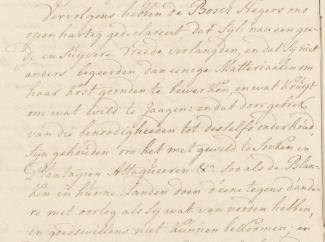 Vervolgens hebben de Bosch Negers ons
open hartig gedeclareert dat Syl. naa een goe-
de en Suyvere Vreede verlangden, en dat Sy niet
anders begeerden dan eenige Matteriaalen om
haar kost gronden te bewerken, en wat kruyt
om wat wild te Jaagen: en dat door gebrek
van die benoodigheeden tot deszelfs onderhoud
Syn gehouden om het met geweld te Soeken en
Plantagien Attaqueeren &. soo als de Blan-
ken in hunne Landen doen d'eene tegens d'ande-
re met oorlog als Sy wat van nooden hebben,
en goedwillens niet kunnen bekoomen; en